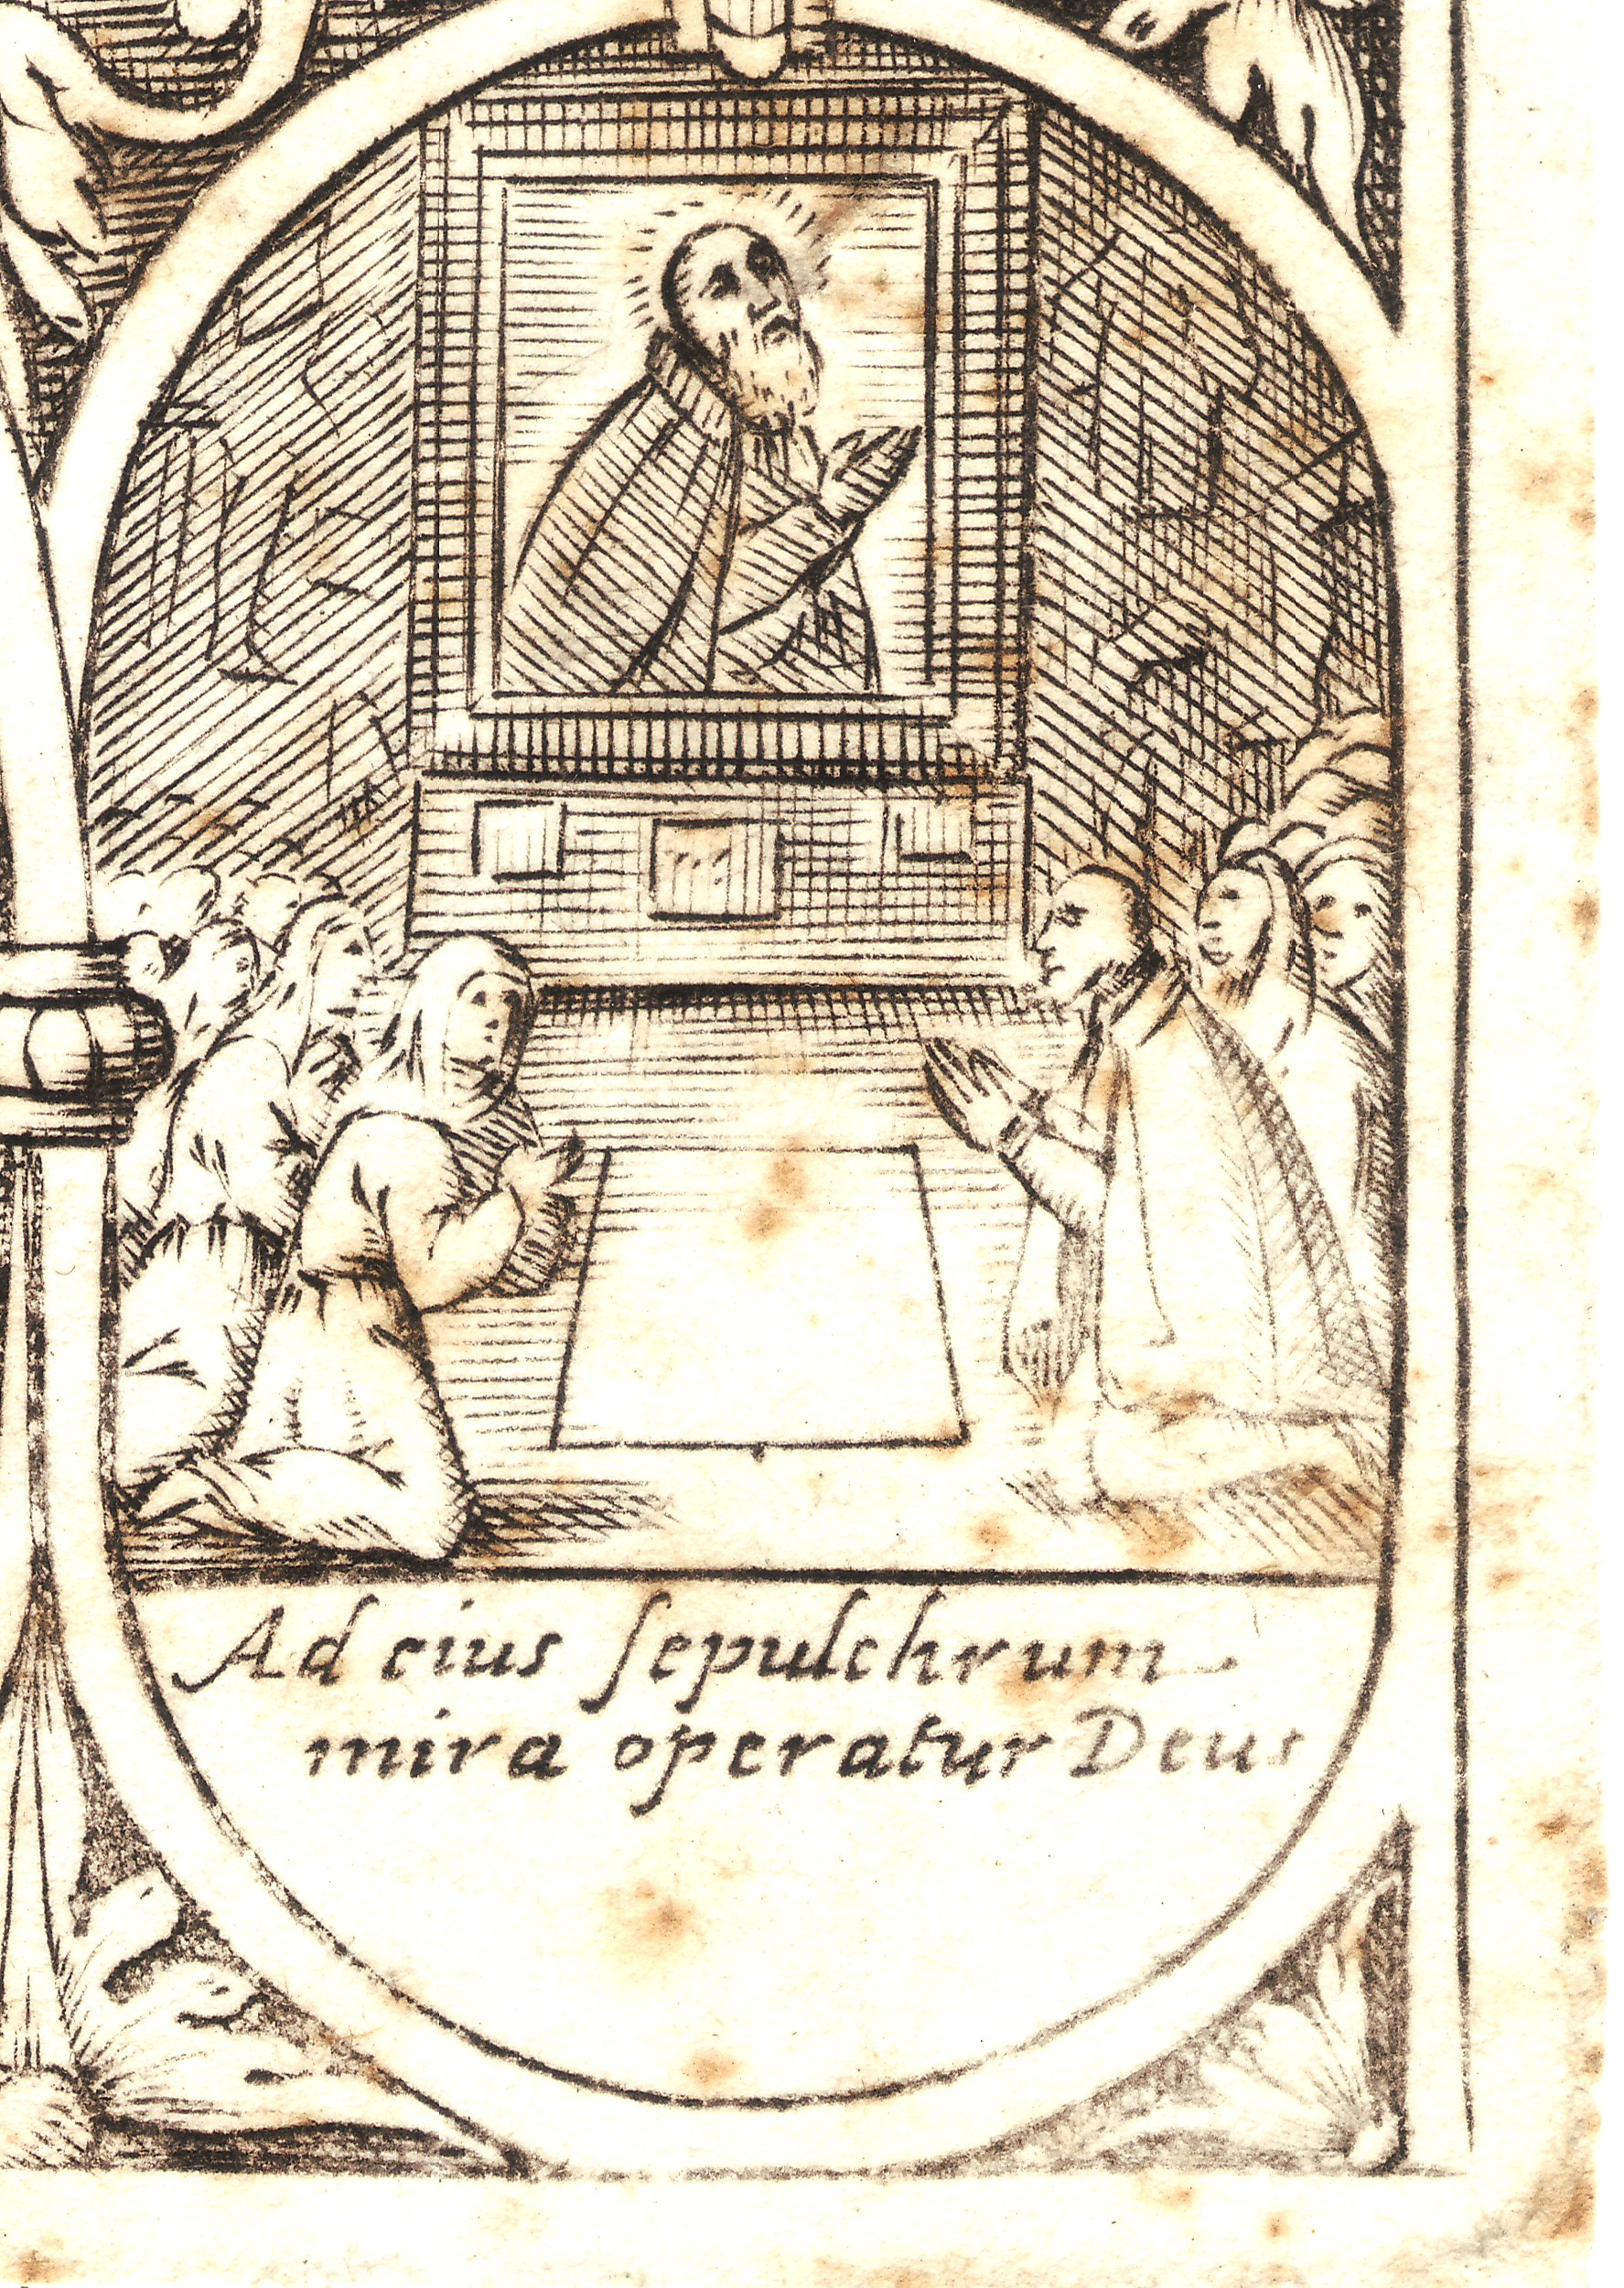 Ad eius ſepulchrum
mira operatur Deus